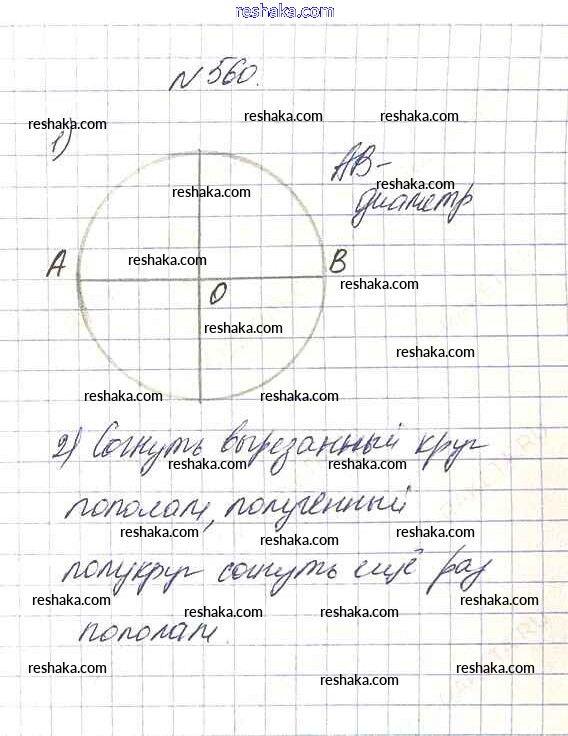 reshaka.com
N 560.
reshaka.com reshaka.com reshaka.com
1)
AB-
reshaka.com reshaka.com
диаметр
reshaka.com
A B
reshaka.com
O
reshaka.com
reshaka.com
reshaka.com reshaka.com
2) Согнуть вырезанный круг
reshaka.com reshaka.com
пополам, полученный
reshaka.com reshaka.com reshaka.com
полукруг согнуть ещё раз
reshaka.com reshaka.com reshaka.com reshaka.com
пополам.
reshaka.com reshaka.com reshaka.com